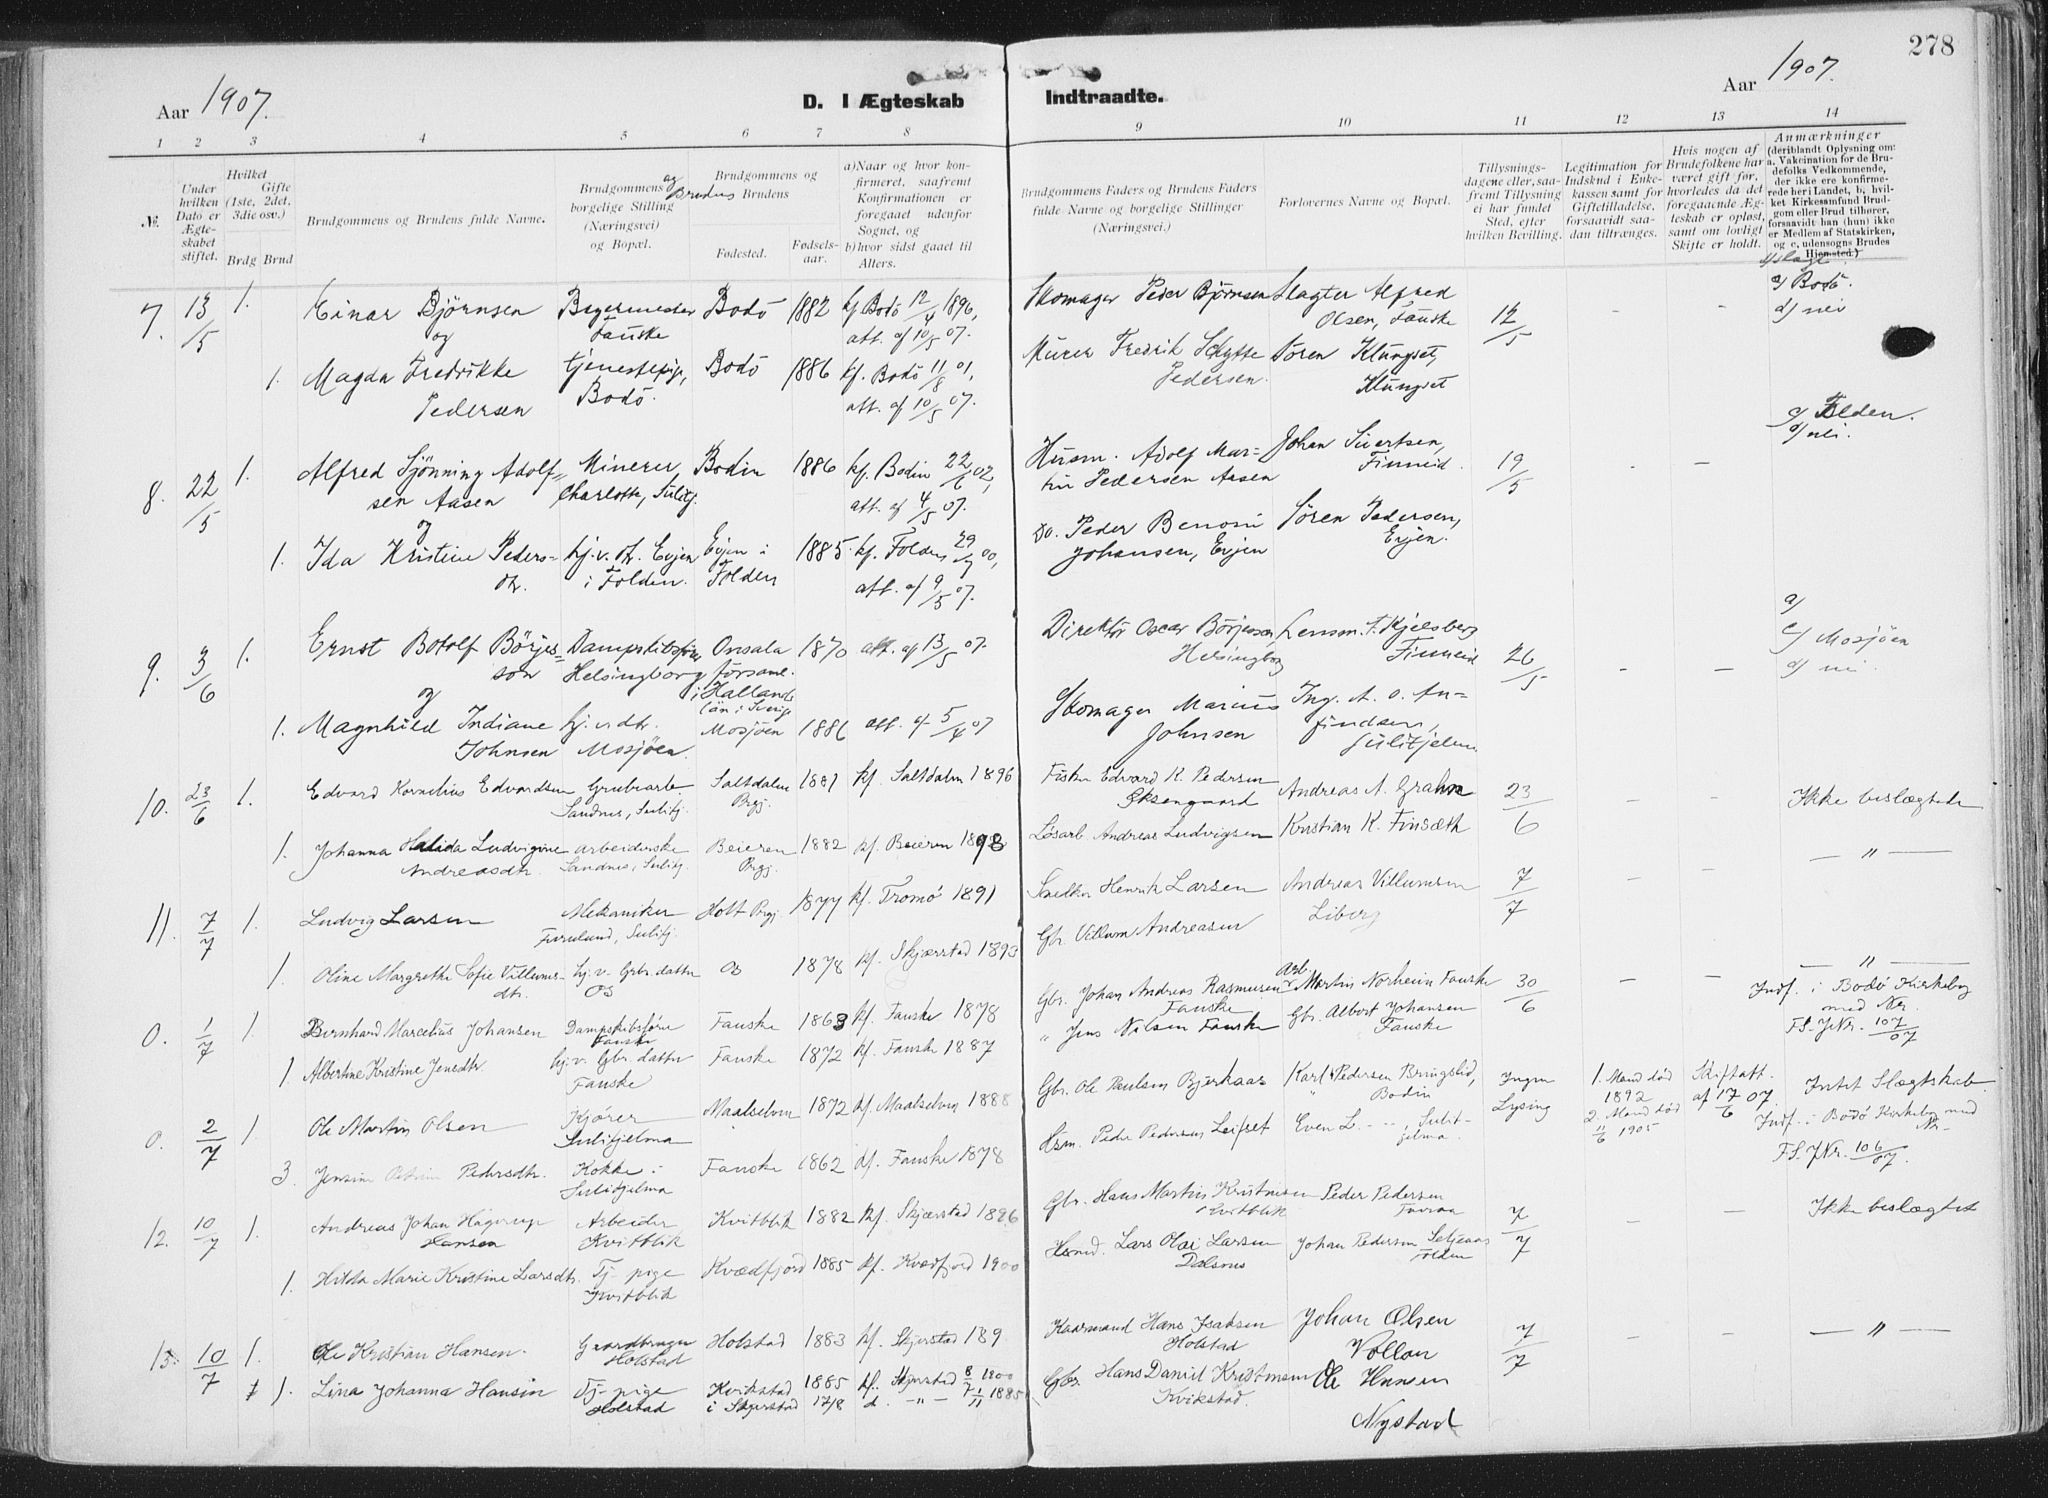 278
Aar 1907.
D. I Ægteskab Indtraadte.
Aar 1907.
1 2 3 4 5 6 7 8 9 10 11 12 13 14
№.
Under hvilken Dato er Ægteskabet stiftet.
Hvilket Gifte (1ste, 2det, 3die osv.)
Brdg Brud
Brudgommens og Brudens fulde Navne.
Brudgommens og Brudens borgelige Stilling (Næringsvei) og Bopæl.
Brudgommens og Brudens
Fødested.
Fødselsaar.
a) Naar og hvor konfirmeret, saafremt Konfirmationen er foregaaet udenfor Sognet, og
b) hvor sidst gaaet til Alters.
Brudgommens Faders og Brudens Faders fulde Navne og borgelige Stillinger (Næringsvei.)
Forlovernes Navne og Bopæl.
Tillysningsdagene eller, saafremt Tillysning ei har fundet Sted, efter hvilken Bevilling.
Legitimation for Indskud i Enkekassen samt for Giftetilladelse, forsaavidt saadan tiltrænges.
Hvis nogen af Brudefolkene har været gift før, hvorledes da det foregaaende Ægteskab er opløst, samt om lovligt Skifte er holdt.
Anmærkninger (deriblandt Oplysning om: a. Vakcination for de Brudefolks Vedkommende, der ikke ere konfirmerede her i Landet, b, hvilket Kirkesamfund Brudgom eller Brud tilhører, forsaavidt han (hun) ikke er Medlem af Statskirken, og c, udensogns Brudes Hjemsted.)
7. 13/5 1. Einar Björnsen Bagermester Fauske Bodö 1882 kf Bodö 12/4 1896, att. af 10/5 07. Skomager Peder Björnsen Slagter Alfred Olsen, Fauske 12/5 - c/ Bodö. d/ nei
og
1. Magda Fredrikke Pedersen tjenestepige, Bodö. Bodö 1886 kf. Bodö 11/8 01, att. af 10/5 07. Murer Fredrik Schytte Pedersen. Sören Klungset, Klungset
8. 22/5 1. Alfred Sjönning Adolfsen Aasen Minerer, Charlotta, Sulitj. Bodin 1886 kf. Bodin 22/6 02, att. af 4/5 07. Husm. Adolf Martin Pedersen Aasen Johan Sivertsen, Finneid. 19/5 - - c/ Folden. d/ nei.
og
1. Ida Kristine Pedersdtr. hj.v. dt. Evjen i Folden. Evjen i Folden 1885. kf. Folden 29/7 00, att. af 9/5 07. Do. Peder Benoni Johansen, Evjen Sören Pedersen, Evjen.
9. 3/6 1. Ernst Botolf Börjesson Dampskibsförer Helsingborg Onsala församl. i Hallands län i Sverige 1870 att. af 13/5 07. Direktör Oscar Börjesson, Helsingborg Lensm. T. Kjelsberg Finneid 26/5 - - a/ c/ Mosjöen d/ nei.
og
1. Magnhild Indiane Johnsen hj.v dtr. Mosjöen. Mosjöen 1886 att. af 5/4 07 Skomager Marius Johnsen Ing. A. O. Anfindsen, Sulitjelma
10. 23/6 1. Edvard Kornelius Edvardsen Grubearb Sandnes, Sulitj. Saltdalen Prgj. 1881 kf. Saltdalen 1896 Fisker Edvard K. Pedersen Oksengaard Andreas A. Grahn 23/6 - - Ikke beslægtede
1. Johanna Halida Ludvigine Andreasdtr. arbeiderske Sandnes, Sulitj. Beieren Prgj. 1882 kf. Beieren 1898 Løsarb. Andreas Ludvigsen Kristian K. Finsæth
11. 7/7 1. Ludvig Larsen Mekaniker Furulund, Sulitj. Holt Prgj. 1877 kf. Tromö 1891 Snedker Henrik Larsen Andreas Villumsen Liberg 7/7 - - — " —
1. Oline Margrethe Sofie Villumsdtr. hj.v. Gbr. datter Os Os 1878 kf. Skjærstad 1893 Gbr. Villum Andreasen
0. 1/7 1. Bernhard Marcelius Johansen Dampskibsfører Fauske Fauske 1863 kf. Fauske 1878 Gbr. Johan Andreas Rasmusen Fauske Arb. Martin Norheim Fauske 30/6 - - — " — Indf. i Bodø Kirkebog med Nr. F.S. JNr. 107/07
1. Albertine Kristine Jensdtr hj.v. Gbr. datter Fauske Fauske 1872 kf. Fauske 1887 " Jens Nilsen Fauske Gbr. Albert Johansen Fauske
0. 2/7 1. Ole Martin Olsen Kjører Sulitjelma Maalselven 1872 kf. Maalselven 1888 Gbr. Ole Paulsen Bjerkaas Karl Pedersen Bringslid, Bodin Ingen Lysing 1. Mand død 1892 2. Mand død 11/6 1905 Skifteatt. af 17/6 07 Intet Slægtskab Indf. i Bodø Kirkebog med Nr. F.S. JNr. 106/07.
3. Jensine Petrine Pedersdtr. Kokke i Sulitjelma Fauske 1862 kf. Fauske 1878 Hsm. Peder Pedersen Leifset Even L. - - , Sulitjelma.
12. 10/7 1. Andreas Johan Hagerup Hansen Arbeider Kvitblik Kvitblik 1882 kf. Skjærstad 1896 Gbr. Hans Martin Kristensen Kvitblik Peder Pedersen Furraa 7/7 - - Ikke beslægtet
1. Hilda Marie Kristine Larsdtr. Tj. pige Kvitblik Kvædfjord 1885 kf. Kvædfjord 1900 Hsmd. Lars Olai Larsen Dalsnes Johan Pedersen Seljeaas Folden
13. 10/7 1. Ole Kristian Hansen. Gaardbruger Holstad Holstad 1883 kf. Skjerstad 189 Kaarmand Hans Isaksen Holstad Johan Olsen Vollan 7/7 - - — " —
1. Lina Johanna Hansin Tj. pige Holstad Kvikstad i Skjerstad 1885 17/8 kf. Skjerstad 8/7 1900 d. - " - 1/11 1885 Gbr. Hans Daniel Kristensen Kvikstad. Ole Hansen Nystad